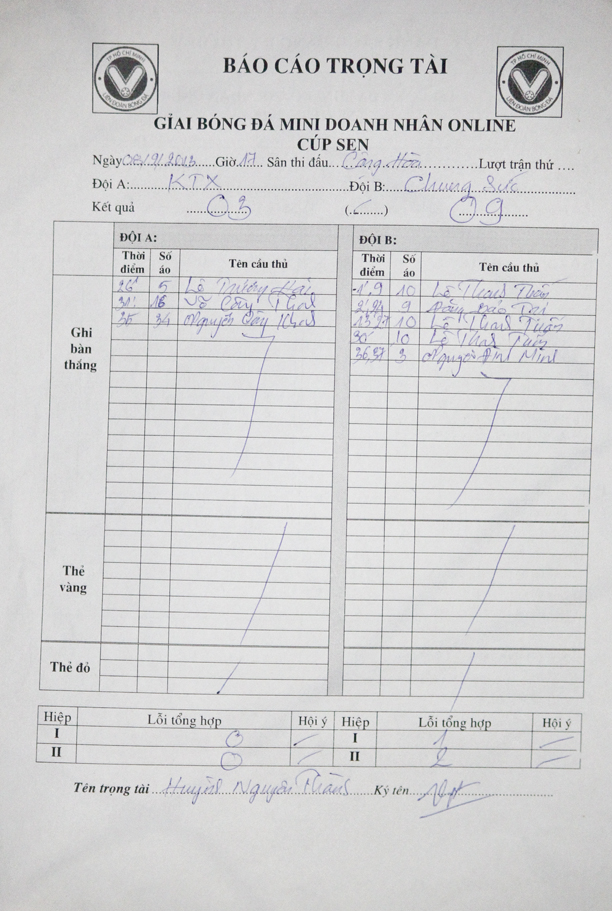 TP HỒ CHÍ MINH
LIÊN ĐOÀN BÓNG ĐÁ
BÁO CÁO TRỌNG TÀI
TP HỒ CHÍ MINH
LIÊN ĐOÀN BÓNG ĐÁ
GIẢI BÓNG ĐÁ MINI DOANH NHÂN ONLINE
CÚP SEN
Ngày 08/9/2013 Giờ 17 Sân thi đấu Cộng Hòa Lượt trận thứ ....
Đội A: KTX Đội B: Chung Sức
Kết quả 03 (......) 09
ĐỘI A: ĐỘI B:
Thời điểm Số áo Tên cầu thủ Thời điểm Số áo Tên cầu thủ
Ghi bàn thắng
26' 5 Lê Trường 9 10 Lê Thanh
31' 16 Võ Công 9
35 34 Nguyễn 10 Lê Thanh Tuấn
30 10 Lê
36,37 3 Nguyễn Minh
Thẻ vàng
Thẻ đỏ
Hiệp Lỗi tổng hợp Hội ý Hiệp Lỗi tổng hợp Hội ý
I 0 I 1
II 0 II 2
Tên trọng tài Huỳnh Nguyên Thành Ký tên